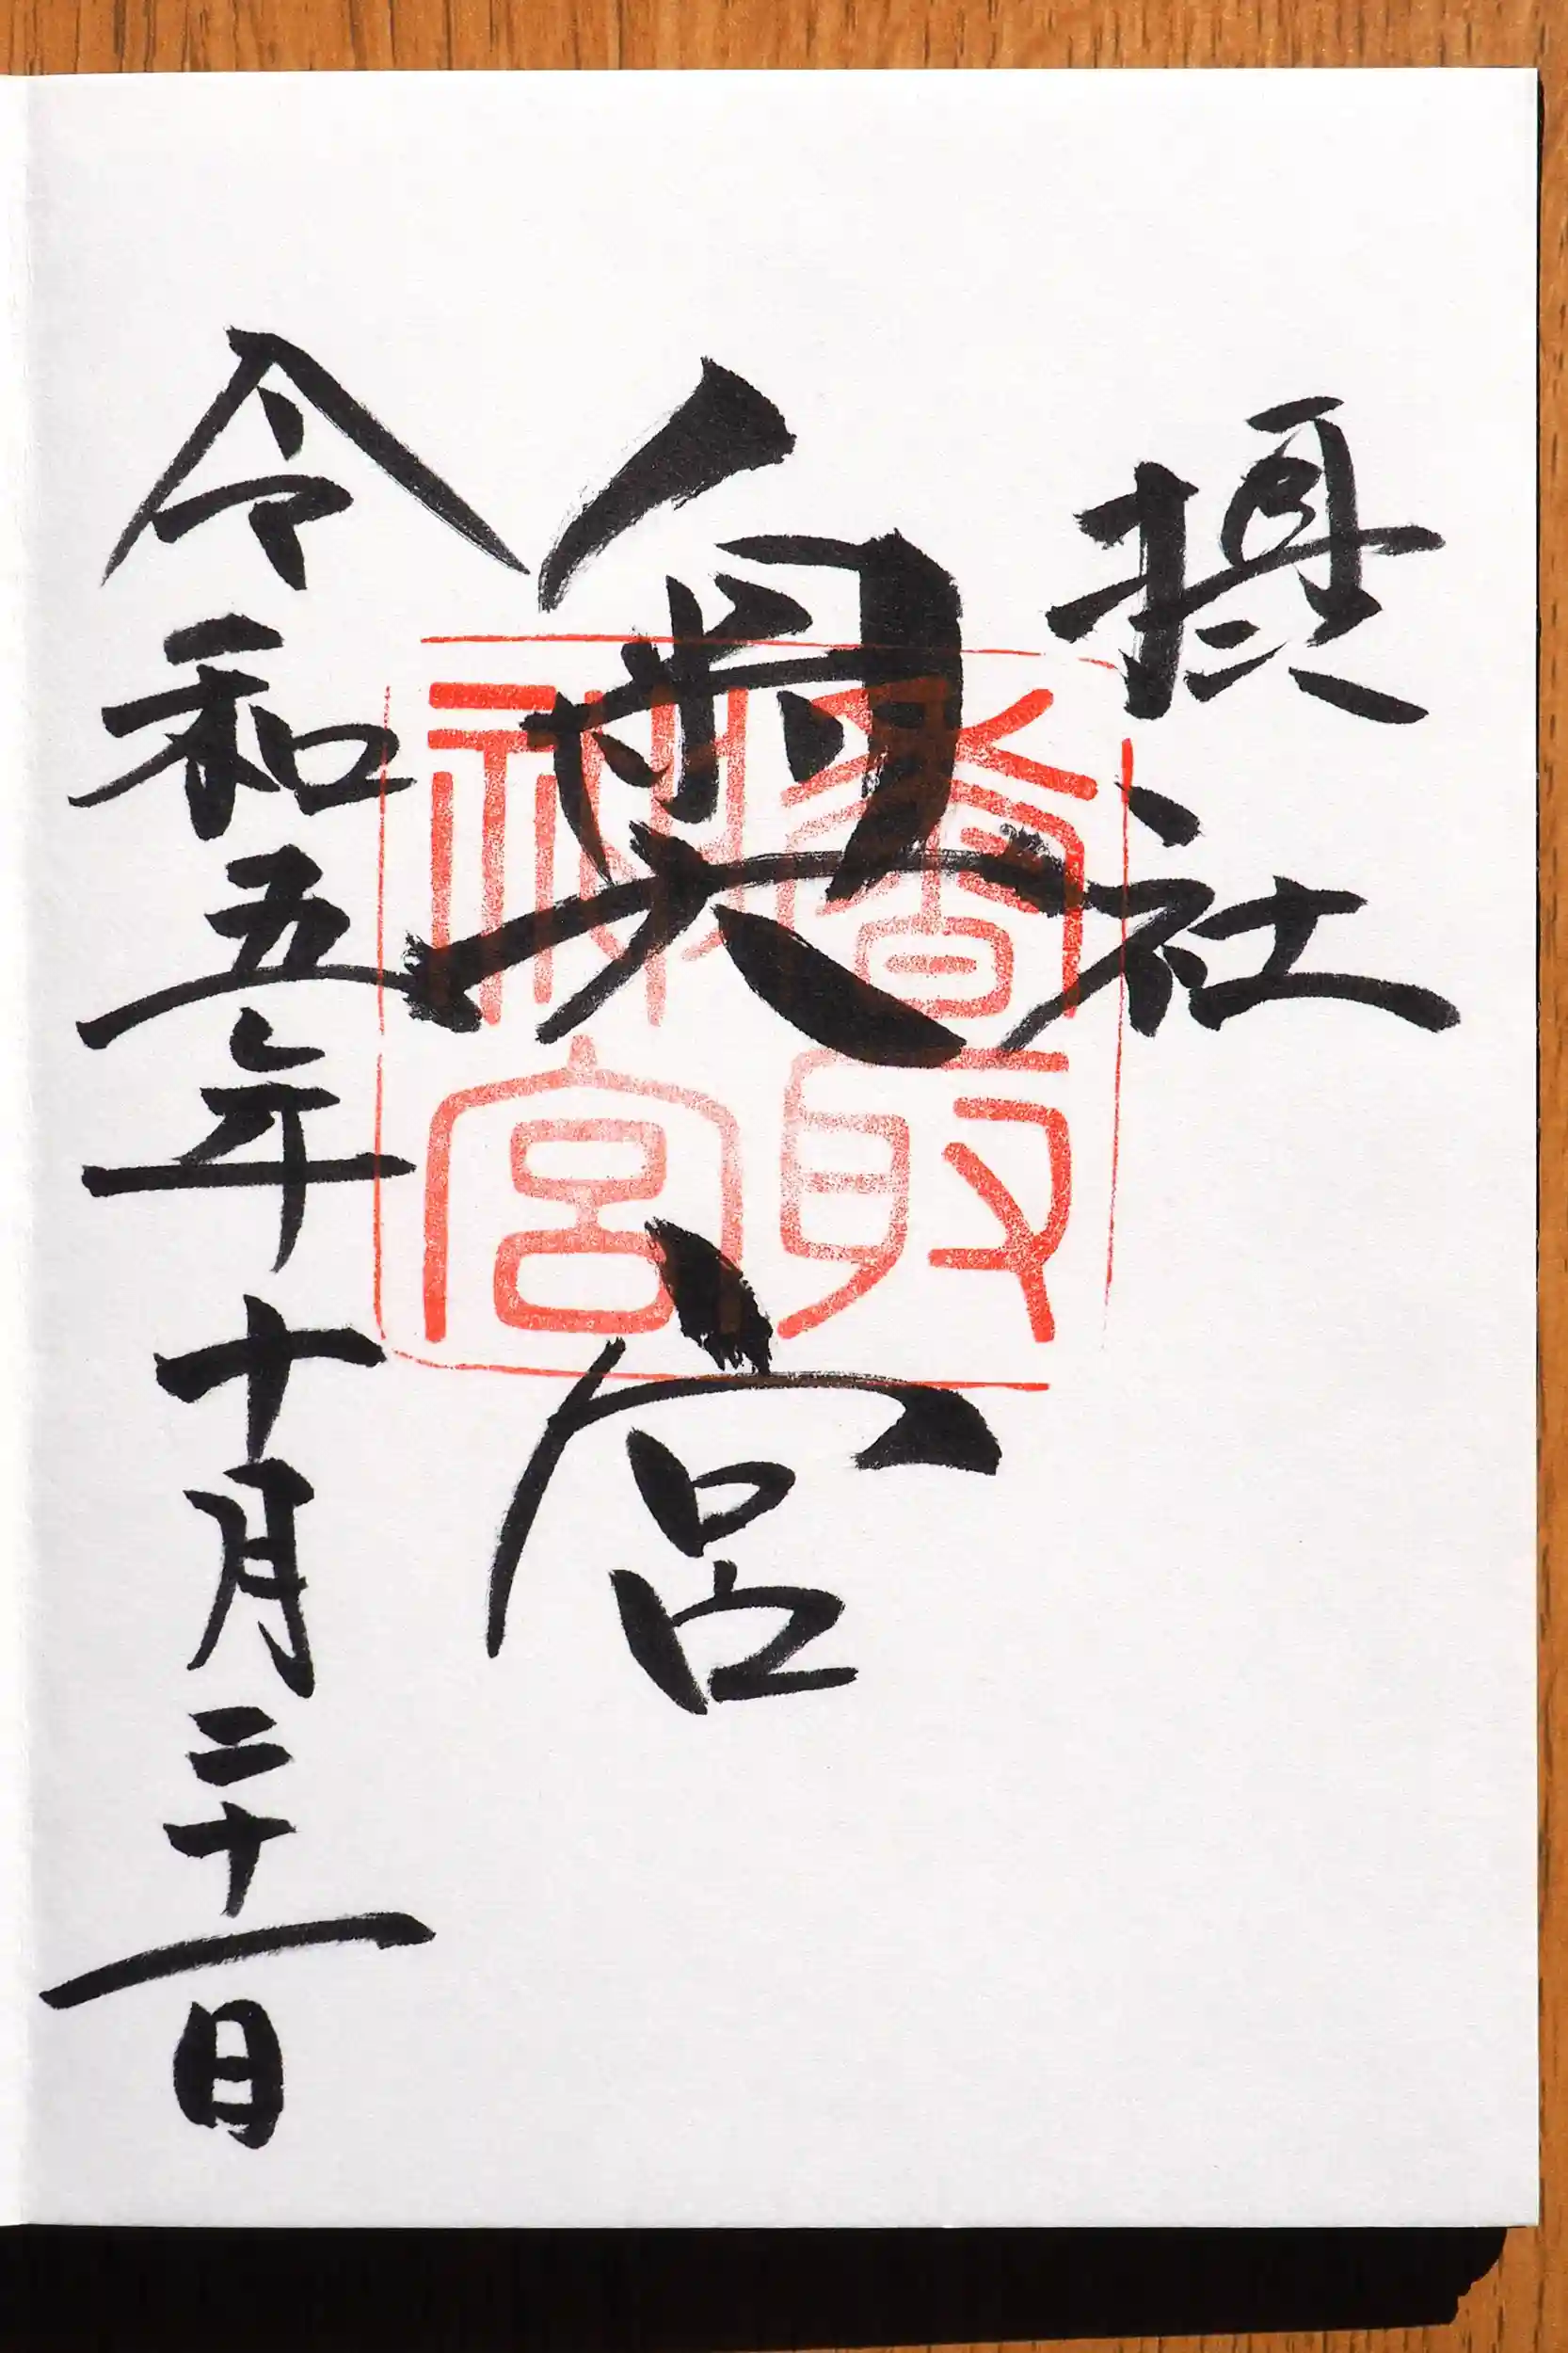 摂社
奥宮
香取神宮
令和五年十月二十一日